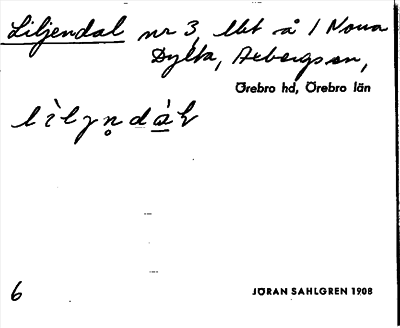 Liljendal nr 3, lht å 1 Norra
Dylta, Axbergs sn,
Örebro hd, Örebro län
6
JÖRAN SAHLGREN 1908